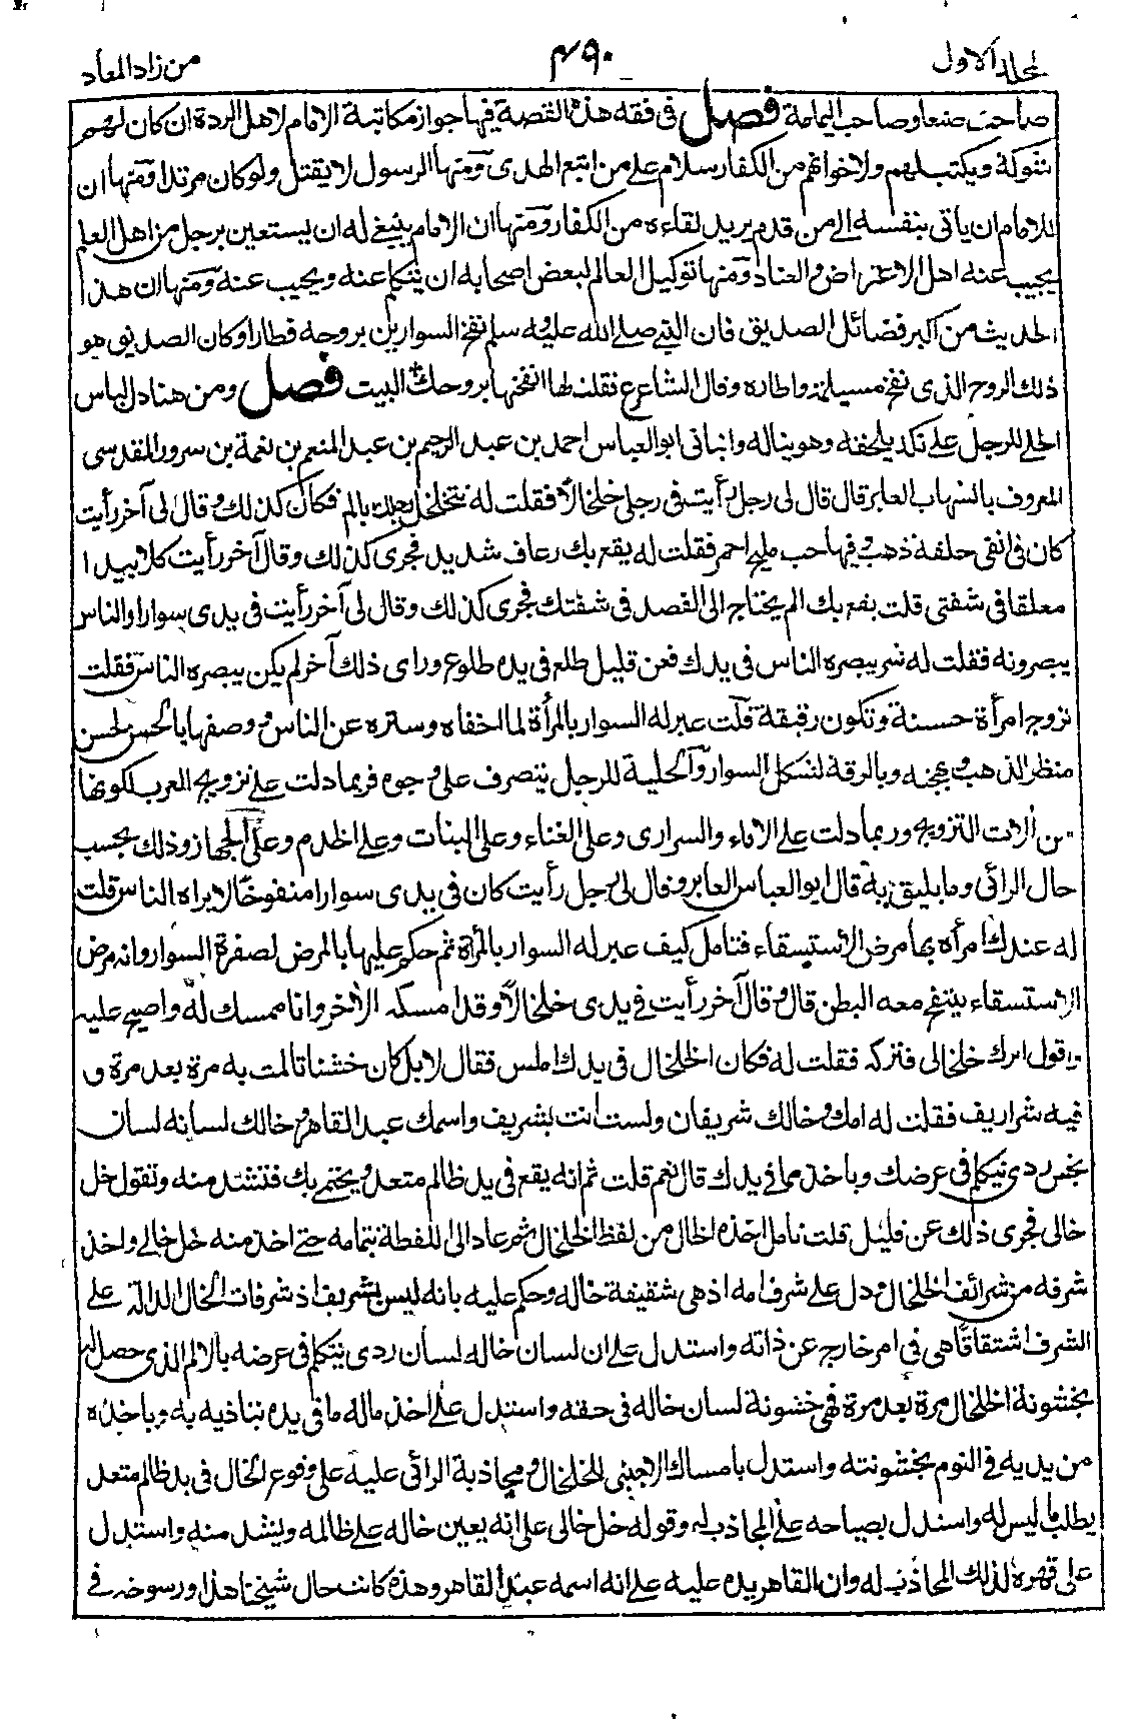 المجلد الاول
۴۹۰
من زاد المعاد
صاحب صنعا وصاحب اليمامة فصل فى فقه هذه القصة فيها جواز مكاتبة الامام لاهل الردة ان كان لهم
شوكة ويكتب لهم ولاخوانهم من الكفار سلام على من اتبع الهدى ومنها ان الرسول لا يقتل ولو كان مرتدا ومنها ان
للامام ان ياتى بنفسه الى من قدم يريد لقاءه من الكفار ومنها ان الامام ينبغى له ان يستعين برجل من اهل العلم
يجيب عنه اهل الاعتراض والعناد ومنها توكيل العالم لبعض اصحابه ان يتكلم عنه ويجيب عنه ومنها ان هذا
الحديث من اكبر فضائل الصديق فان النبى صلى الله عليه وسلم نفخ السوارين بروحه فطارا وكان الصديق هو
ذلك الروح الذى نفخ مسيلمة واطاره وقال الشاعر ع فقلت لها انفخها بروحك البيت فصل ومن هنا دل لباس
الحلى للرجل على نكد يلحقه وهم يناله وانبانى ابو العباس احمد بن عبد الرحيم بن عبد المنعم بن نعمة بن سرور المقدسى
المعروف بالشهاب العابر قال قال لى رجل رأيت فى رجلى خلخالا فقلت له تتخلخل رجلك بالم فكان كذلك وقال لى آخر رأيت
كان فى انفى حلقة ذهب وفيها حب مليح احمر فقلت له يقع بك رعاف شديد فجرى كذلك وقال آخر رأيت كلابيدا
معلقا فى شفتى قلت يقع بك الم يحتاج الى الفصد فى شفتك فجرى كذلك وقال لى آخر رأيت فى يدى سوارا والناس
يبصرونه فقلت له شر يبصره الناس فى يدك فعن قليل طلع فى يده طلوع وراى ذلك آخر لم يكن يبصره الناس فقلت
تزوج امرأة حسنة وتكون رقيقة قلت عبر له السوار بالمرأة لما اخفاه وستره عن الناس ووصفها بالحسن لحسن
منظر الذهب وبهجته وبالرقة لشكل السوار والحلية للرجل تتصرف على وجوه فربما دلت على تزويج العرب لكونها
من آلات التزويج وربما دلت على الاماء والسرارى وعلى الغناء وعلى البنات وعلى الخدم وعلى الجهاز وذلك بحسب
حال الرائى وما يليق به قال ابو العباس العابر وقال لى رجل رأيت كان فى يدى سوارا منفوخا لا يراه الناس قلت
له عندك امرأه بها مرض الاستسقاء فتامل كيف عبر له السوار بالمرأة ثم حكم عليها بالمرض لصفرة السوار وانه مرض
الاستسقاء ينتفخ معه البطن قال وقال آخر رأيت فى يدى خلخالا وقد امسكه الآخر وانا ممسك له واصيح عليه
واقول اترك خلخالى فتركه فقلت له فكان الخلخال فى يدك املس فقال لا بل كان خشنا تالمت به مرة بعد مرة و
فيه شراريف فقلت له امك وخالك شريفان ولست انت بشريف واسمك عبد القاهر وخالك لسانه لسان
نجس ردى يتكلم فى عرضك وياخذ مما فى يدك قال نعم قلت ثم انه يقع فى يد ظالم متعد ويحتمى بك فتشتد منه وتقول خل
خالى فجرى ذلك عن قليل قلت تامل اخذه الخال من لفظ الخلخال ثم عاد الى اللفظة بتمامه حتى اخذ منه خل خالى واخذ
شرفه من شرائف الخلخال ودل على شرف امه اذ هى شقيقة خاله وحكم عليه بانه ليس بشريف اذ شرفات الخال الدالة على
الشرف اشتقاقا هى فى امر خارج عن ذاته واستدل على ان لسان خاله لسان ردى يتكلم فى عرضه بالالم الذى حصل له
بخشونة الخلخال مرة بعد مرة فهى خشونة لسان خاله فى حقه واستدل على اخذ ماله ما فى يده بتاذيه به وياخذه
من يديه فى النوم بخشونته واستدل بامساك الاجنبى للخلخال ومجاذبة الرائى عليه على وقوع الخال فى يد ظالم متعد
يطلب ما ليس له واستدل بصياحه على المجاذب له وقوله خل خالى على انه يعين خاله على ظالمه ويشد منه واستدل
على قهره لذلك المجاذب له وان القاهر يده عليه على انه اسمه عبد القاهر وهذه كانت حال شيخنا هذا ورسوخه فى